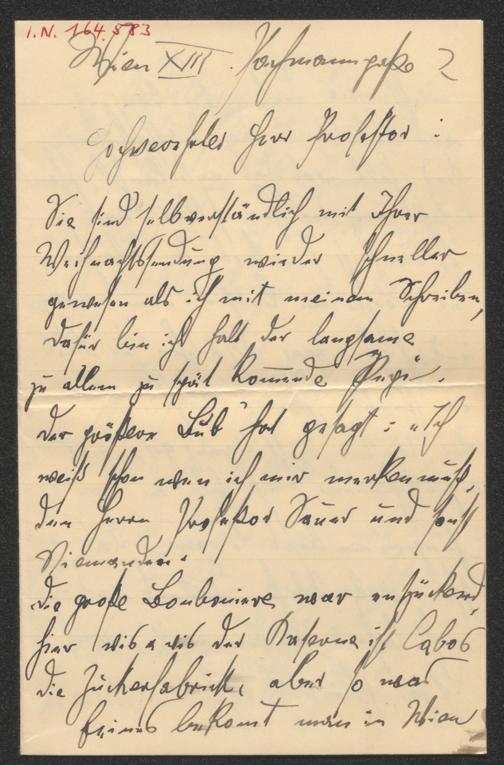 I.N. 164.583
Wien XIII. Hochmanngasse 2
Hochverehrter Herr Professor:
Sie sind selbverständlich mit Ihrer
Weihnachtssendung wieder schneller
gewesen als ich mit meinem Schreiben,
dafür bin ich halt der langsame
zu allem zu spät komende Pepi.
Der größere Bub hat gesagt: „Ich
weiß schon wen ich mir merken muß,
den Herrn Professor Sauer und sonst
Niemanden.
Die große Bonboniere war entzückend,
hier vis a vis der Kaserne ist Cabos
die Zuckerfabrick, aber so was
feines bekomt man in Wien